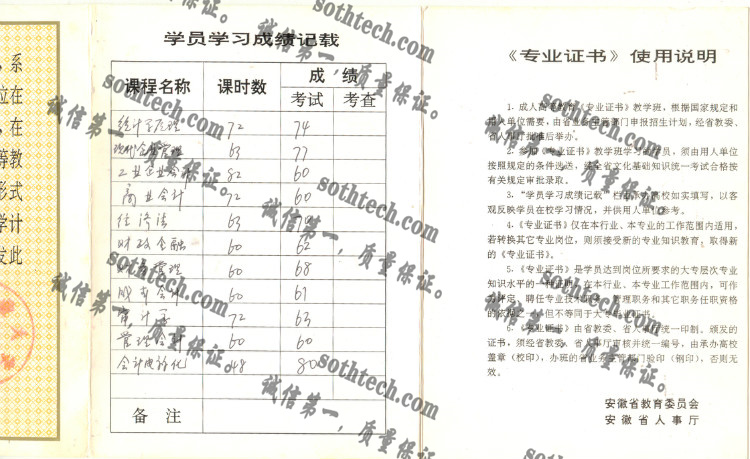 系
位在
在
等教
形式
学计
发此
学员学习成绩记载
课程名称 课时数 成绩
考试 考查
统计学原理 72 74
现代企业管理 63 77
工业企业会计 82 60
商业会计 72 60
经济法 63
财政金融 60 62
管理 60 68
成本会计 60 61
审计学 72 63
管理会计 60 60
会计电算化 48 80
备注
《专业证书》使用说明
1.成人高等教育《专业证书》教学班,根据国家规定和
用人单位需要,由省业务主管部门申报招生计划,经省教委、
省人事厅批准后举办。
2.参加《专业证书》教学班学习的学员,须由用人单位
按照规定的条件选送,经全省文化基础知识统一考试合格按
有关规定审批录取。
3.“学员学习成绩记载”栏由承办高校如实填写,以客
观反映学员在校学习情况,并供用人单位参考。
4.《专业证书》仅在本行业、本专业的工作范围内适用,
若转换其它专业岗位,则须接受新的专业知识教育,取得新
的《专业证书》。
5.《专业证书》是学员达到岗位所要求的大专层次专业
知识水平的一种证明,在本行业、本专业工作范围内,可作
为评定、聘任专业技术职务、管理职务和其它职务任职资格
的依据之一,但不等同于大专毕业证书。
6.《专业证书》由省教委、省人事厅统一印制。颁发的
证书,须经省教委、省人事厅审核并统一编号,由承办高校
盖章(校印),办班的省业务主管部门验印(钢印),否则无
效。
安徽省教育委员会
安徽省人事厅
sothtech.com
诚信第一,质量保证。
sothtech.com
诚信第一,质量保证。
sothtech.com
诚信第一,质量保证。
sothtech.com
诚信第一,质量保证。
sothtech.com
诚信第一,质量保证。
sothtech.com
诚信第一,质量保证。